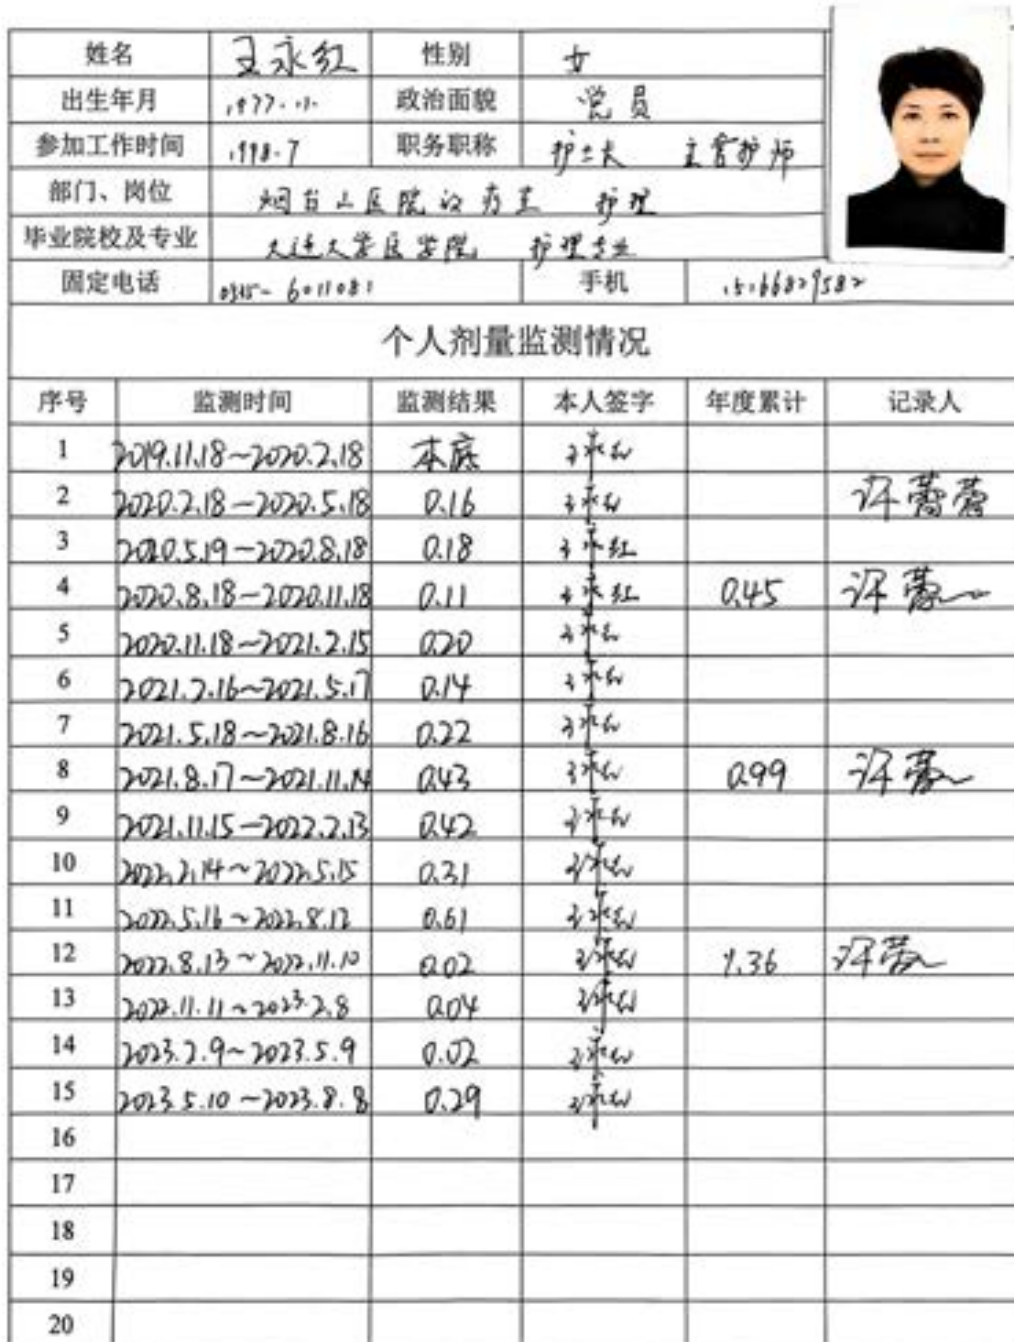 姓名 王永红 性别 女
出生年月 1977.11. 政治面貌 党员
参加工作时间 1998.7 职务职称 护士长 主管护师
部门、岗位 烟台山医院 治疗室 护理
毕业院校及专业 大连大学医学院 护理专业
固定电话 0535-6011081 手机
个人剂量监测情况
序号 监测时间 监测结果 本人签字 年度累计 记录人
1 2019.11.18~2020.2.18 本底 王永红
2 2020.2.18—2020.5.18 0.16 王永红 许蕾蕾
3 2020.5.19—2020.8.18 0.18 王永红
4 2020.8.18—2020.11.18 0.11 王永红 0.45 许
5 2020.11.18~2021.2.15 0.20 王永红
6 2021.2.16~2021.5.17 0.14 王永红
7 2021.5.18~2021.8.16 0.22 王永红
8 2021.8.17~2021.11.14 0.43 王永红 0.99 许
9 2021.11.15—2022.2.13 0.42 王永红
10 2022.2.14~2022.5.15 0.31 王永红
11 2022.5.16~2022.8.12 0.61 王永红
12 2022.8.13~2022.11.10 0.02 王永红 1.36 许
13 2022.11.11~2023.2.8 0.04 王永红
14 2023.2.9~2023.5.9 0.02 王永红
15 2023.5.10~2023.8.8 0.29 王永红
16
17
18
19
20